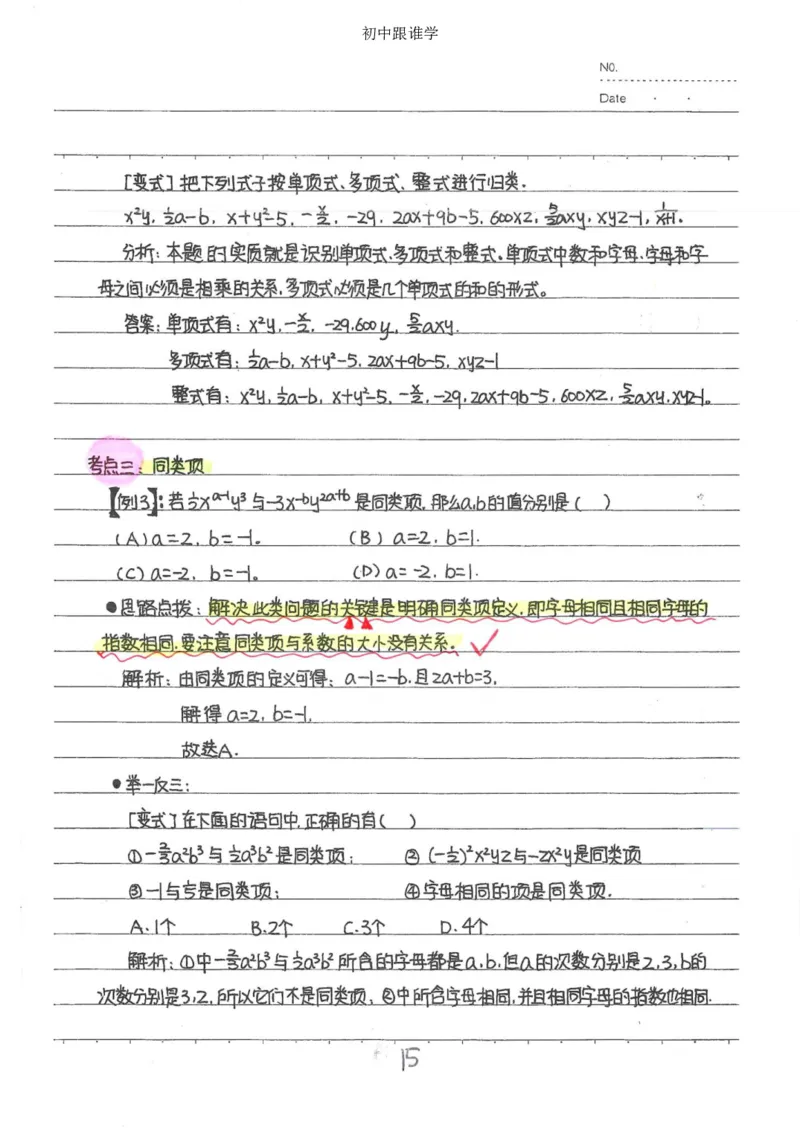 初中跟谁学
NO.
Date
[变式]把下列式子按单项式、多项式、整式进行归类.
x²y, ½a-b, x+y²-5, -x/2, -29, 2ax+9b-5, 600xz, 5/2axy, xyz-1, 1/(x+1).
分析:本题的实质就是识别单项式、多项式和整式。单项式中数和字母、字母和字
母之间必须是相乘的关系,多项式必须是几个单项式的和的形式。
答案:单项式有:x²y, -x/2, -29, 600y, 5/2axy.
多项式有:½a-b, x+y²-5, 2ax+9b-5, xyz-1
整式有:x²y, ½a-b, x+y²-5, -x/2, -29, 2ax+9b-5, 600xz, 5/2axy, xyz-1。
考点三:同类项
【例3】:若½x^(a-1)y³与-3x^(-b)y^(2a+b)是同类项,那么a,b的值分别是( )
(A)a=2, b=-1。 (B) a=2, b=1.
(C)a=-2, b=-1。 (D)a=-2, b=1.
●思路点拨:解决此类问题的关键是明确同类项定义,即字母相同且相同字母的
指数相同,要注意同类项与系数的大小没有关系.
解析:由同类项的定义可得:a-1=-b,且2a+b=3,
解得a=2, b=-1,
故选A.
●举一反三:
[变式]在下面的语句中,正确的有( )
①-⅔a²b³与½a³b²是同类项; ②(-½)²x²yz与-zx²y是同类项
③-1与⅕是同类项; ④字母相同的项是同类项.
A.1个 B.2个 C.3个 D.4个
解析:①中-⅔a²b³与½a³b²所含的字母都是a,b,但a的次数分别是2,3,b的
次数分别是3,2,所以它们不是同类项;②中所含字母相同,并且相同字母的指数也相同.
15